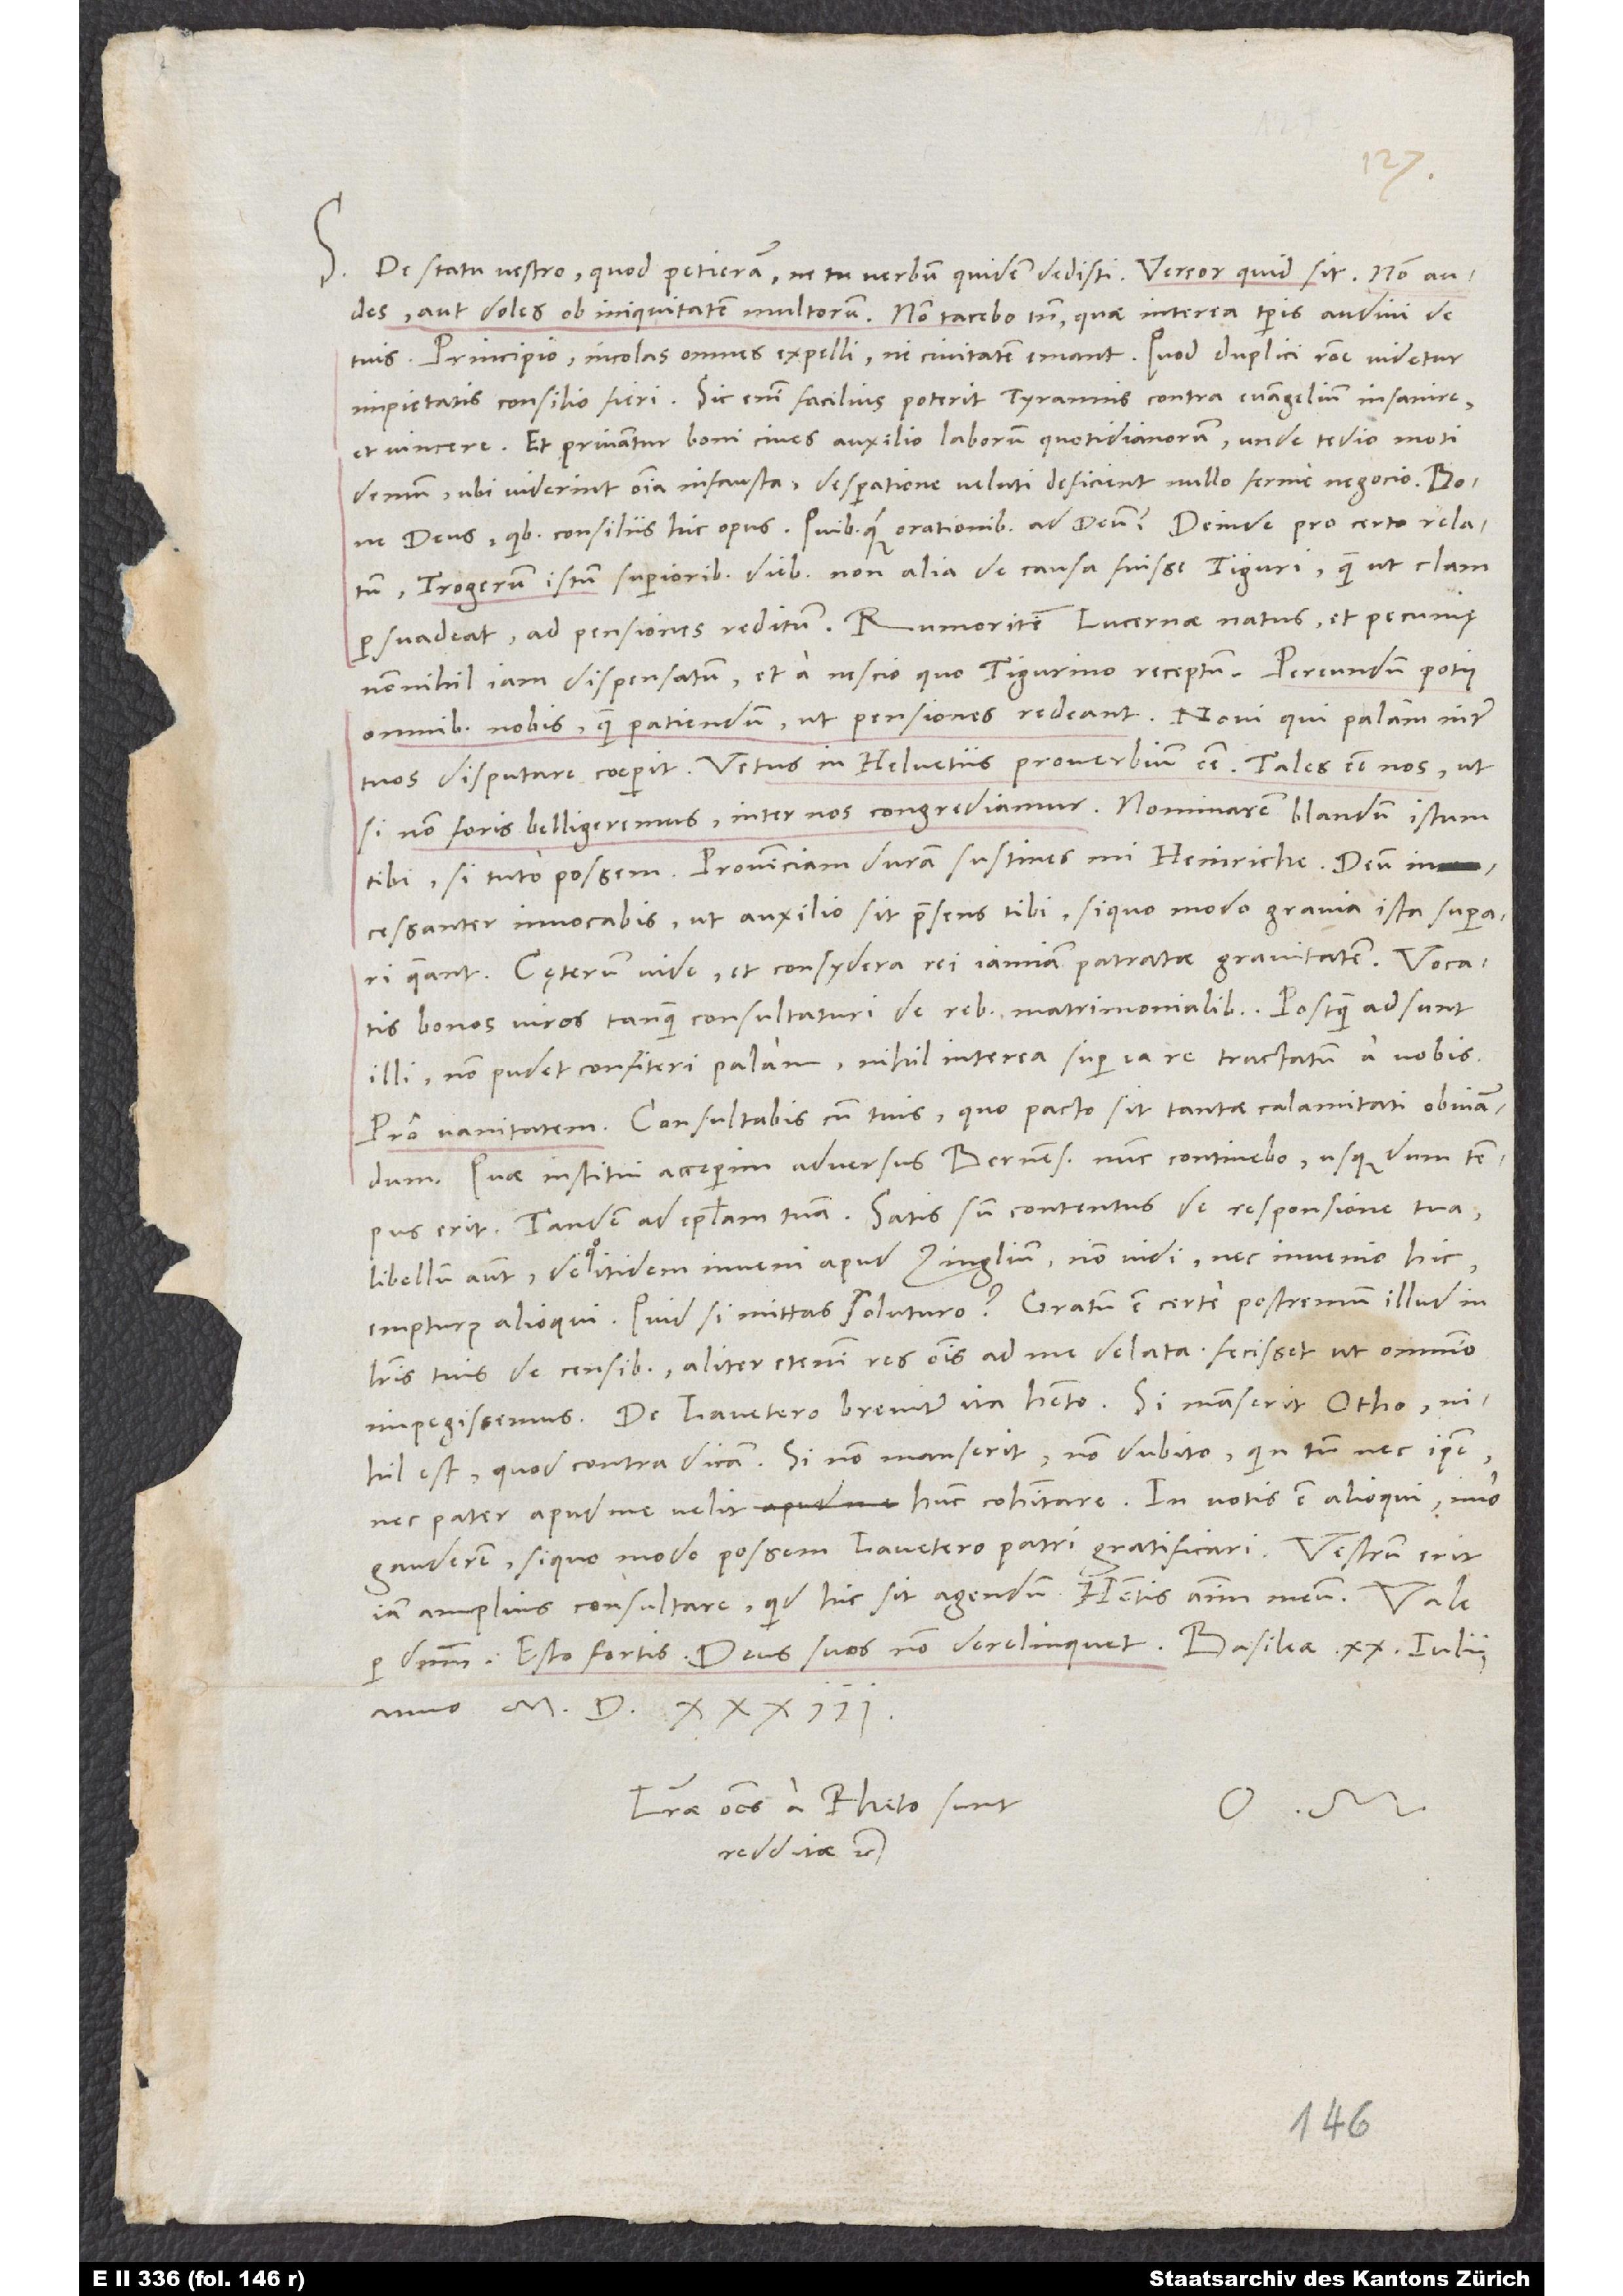 127.
S. De statu vestro, quod petierā, ne tu verbū quidē dedisti. Vereor quid sit. Nō au-
des, aut doles ob iniquitatē multorū. Nō tacebo tn̄, quae interea tp̄is audivi de
tuis. Principio, incolas omnes expelli, ni civitatē emant. Quod duplici rōe videtur
impietatis consilio fieri. Sic enī facilius poterit Tyrannis contra evāgeliū insanire,
et vincere. Et privātur boni cives auxilio laborū quotidianorū, unde tedio moti
demū, ubi viderint oīa infausta, desperatione veluti deficient nullo ferme negocio. Bo-
ne Deus, qib. consiliis hic opus. Quib. q̄ orationib. ad Deū? Deinde pro certo rela-
tū, Trogerū istū superiorib. dieb. non alia de causa fuisse Tiguri, quā ut clam
persuadeat, ad pensiones reditū. Rumor itē Lucernae natus, et pecunię
nonnihil iam dispensatū, et à nescio quo Tigurino receptū. Pereundū potiꝰ
omnib. nobis, quā patiendū, ut pensiones redeant. Novi qui palàm intr̄
tuos disputare coeperit. Vetus in Helvetiis proverbiū eē. Tales eē nos, ut
si nō foris belligeremus, inter nos congrediamur. Nominarē blandū istum
tibi, si tutò possem. Provīciam durā sustines mi Heinriche. Deū in-
cessanter invocabis, ut auxilio sit p̄sens tibi, siquo modo gravia ista supera-
ri queant. Cęterū vide, et consydera rei iamiā patratae gravitatē. Voca-
tis bonos viros tanquā consultaturi de reb. matrimonialib. Postquā adsunt
illi, nō pudet confiteri palam, nihil interea super ea re tractatū à vobis.
Prô vanitatem. Consultabis cū tuis, quo pacto sit tantae calamitati obviā-
dum. Quae institui acceperim adversus Bernēs. nūc continebo, usq̄ dum tē-
pus erit. Tandē ad epl̄am tuā. Satis sū contentus de responsione tua,
libellū aūt, de quo itidem inveni apud Zingliū, nō vidi, nec invenio hic,
empturꝰ alioqui. Quid si mittas soluturo? Gratū ē certè postremū illud in
lr̄is tuis de censib., aliter etenī res oīs ad me delata fecisset ut omnīo
impegissemus. De Lavetero brevitr̄ ita hēto. Si māserit Otho, ni-
hil est, quod contra dicā. Si nō manserit, nō dubito, qin tū nec ip̄e,
nec pater apud me velit apud me hūc cohītare. In votis ē alioqui, imò
gauderē, siquo modo possem Lavetero patri gratificari. Vestrū erit
iā amplius consultare, qid hic sit agendū. Hētis aīm meū. Vale
per dn̄m. Esto fortis. Deus suos nō derelinquet. Basileae .xx. Iulii
anno M. D. XXXiii.
Lr̄ae oēs à Rheto sunt
O .M.
redditae
146
E II 336 (fol. 146 r)
Staatsarchiv des Kantons Zürich